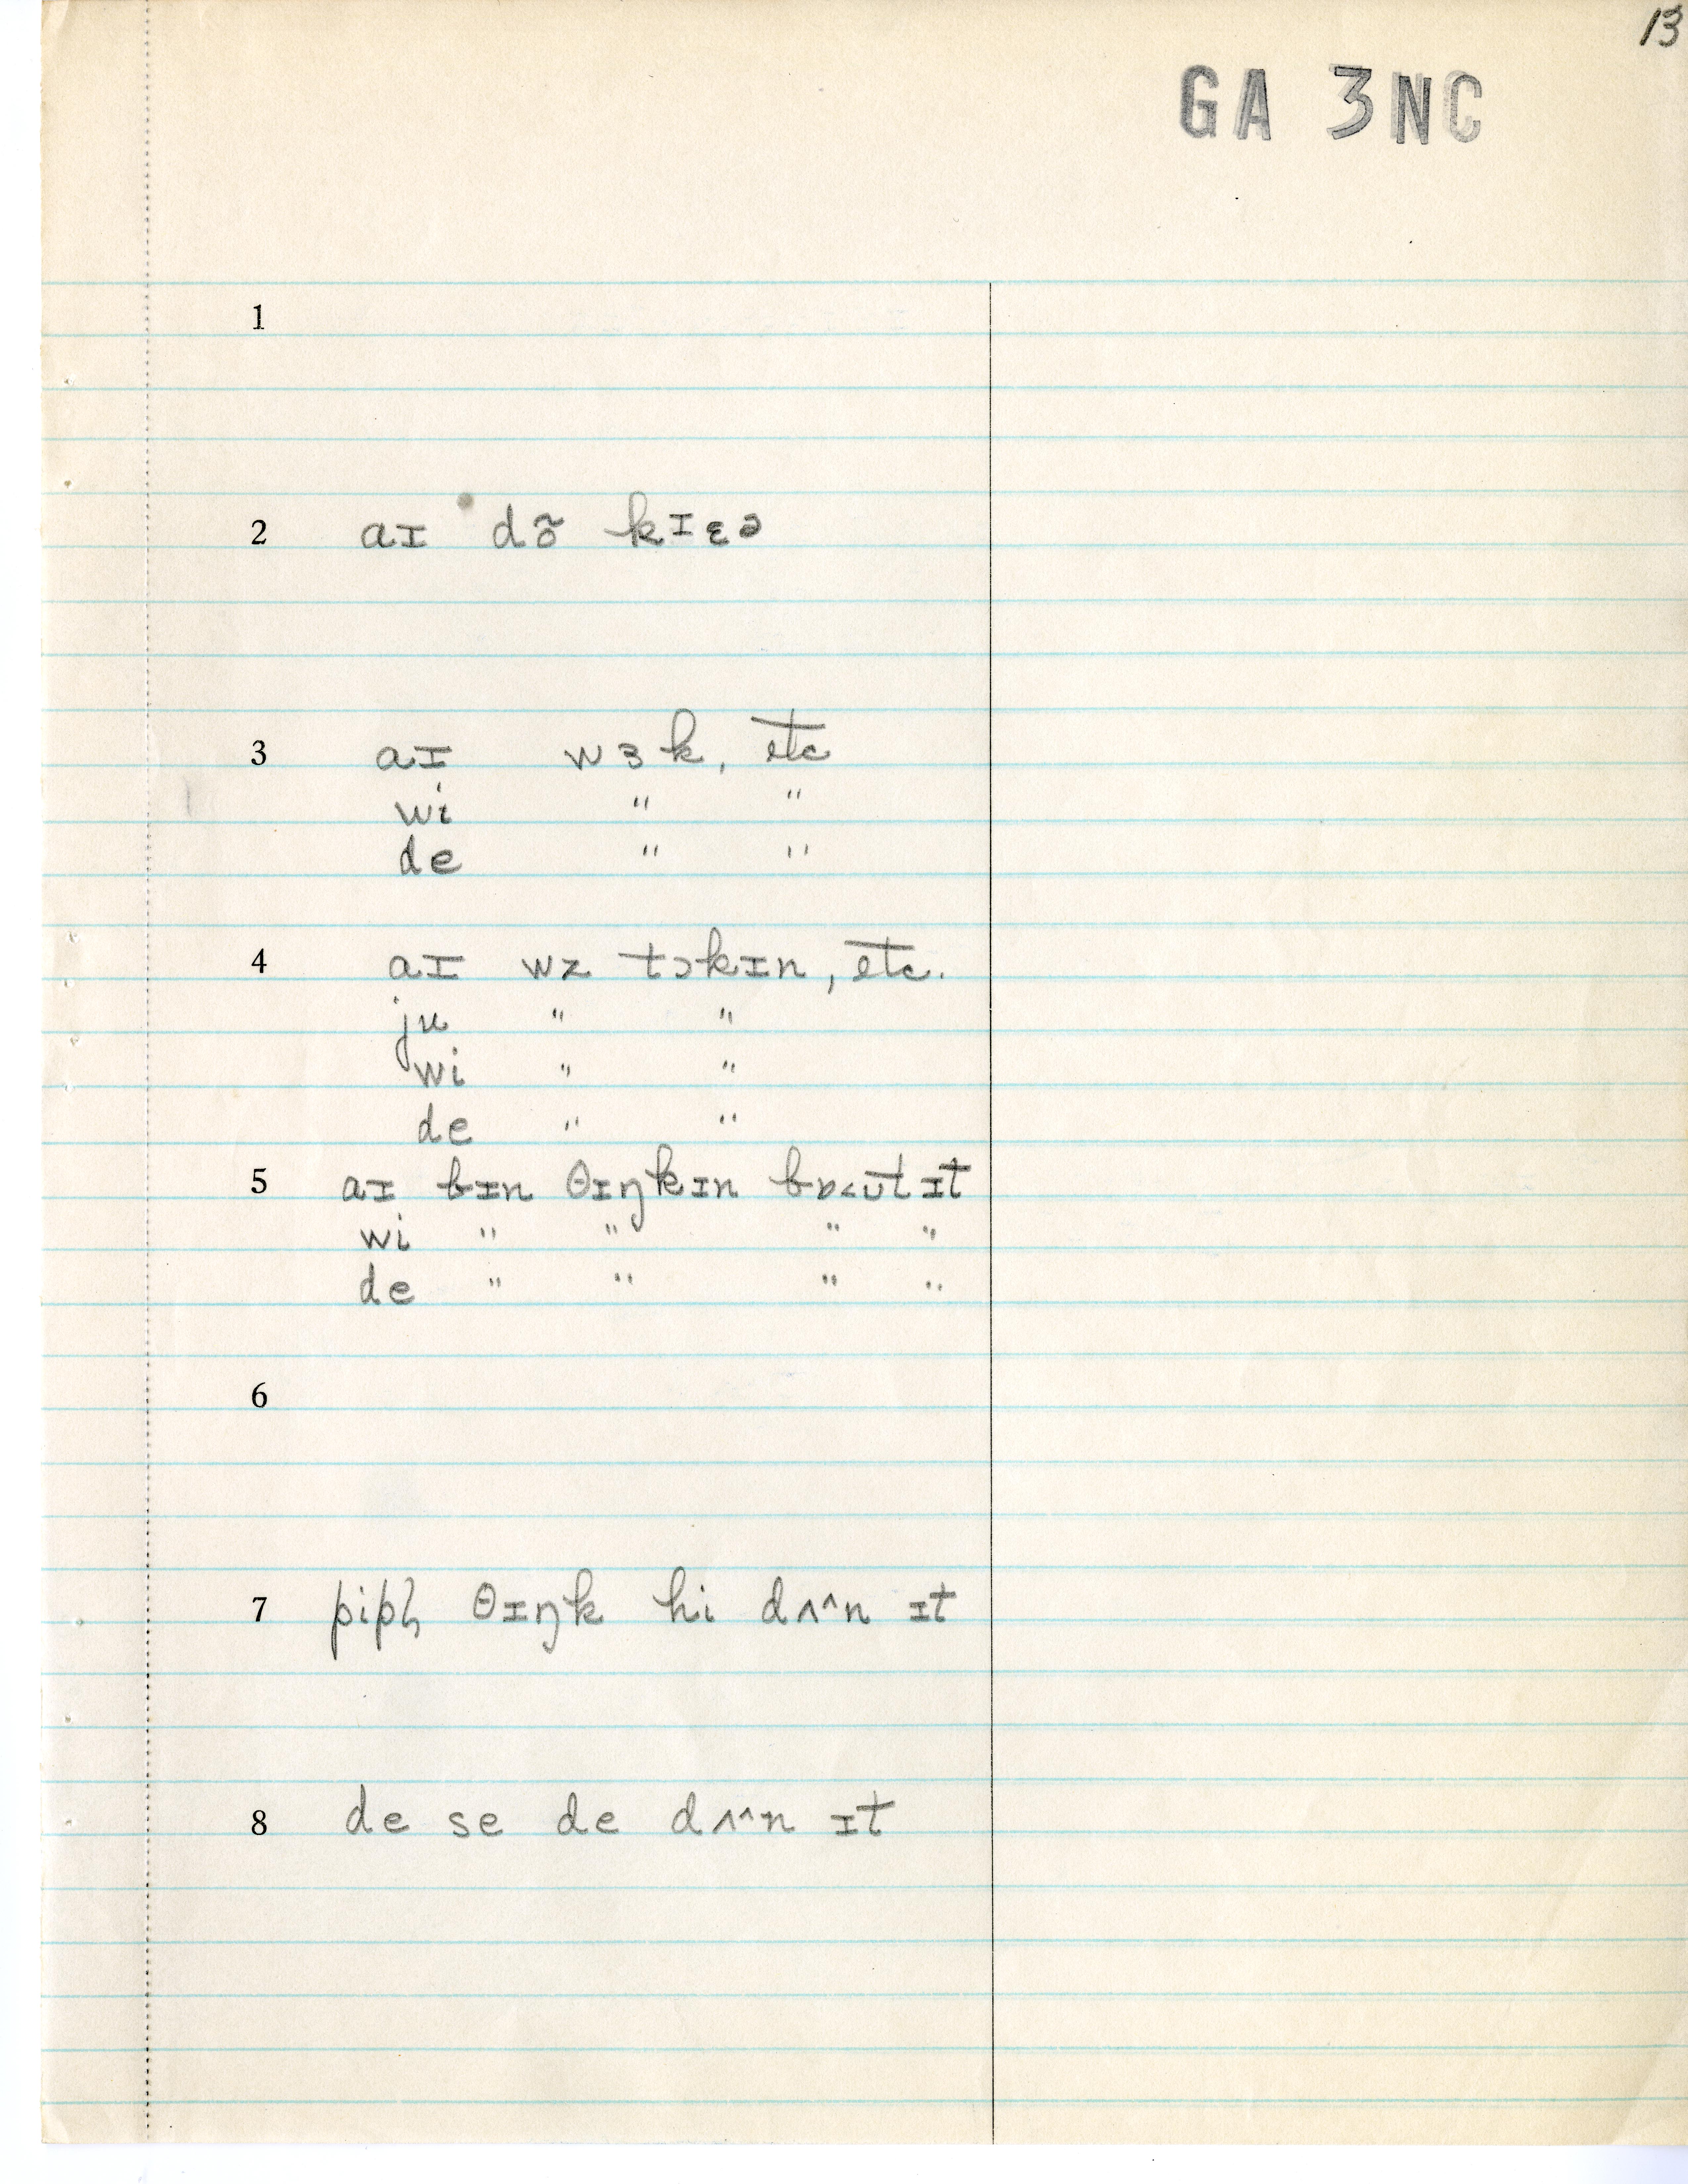 13
GA 3NC
1
2 aɪ dõ kɪɛə
3 aɪ wɜk, etc
wi " "
de " "
4 aɪ wz tɔkɪn, etc.
ju " "
wi " "
de " "
5 aɪ bɪn θɪŋkɪn bɒ<ʊt ɪt
wi " " " "
de " " " "
6
7 θɪŋk hi dʌ^^n ɪt
8 de se de dʌ^^n ɪt